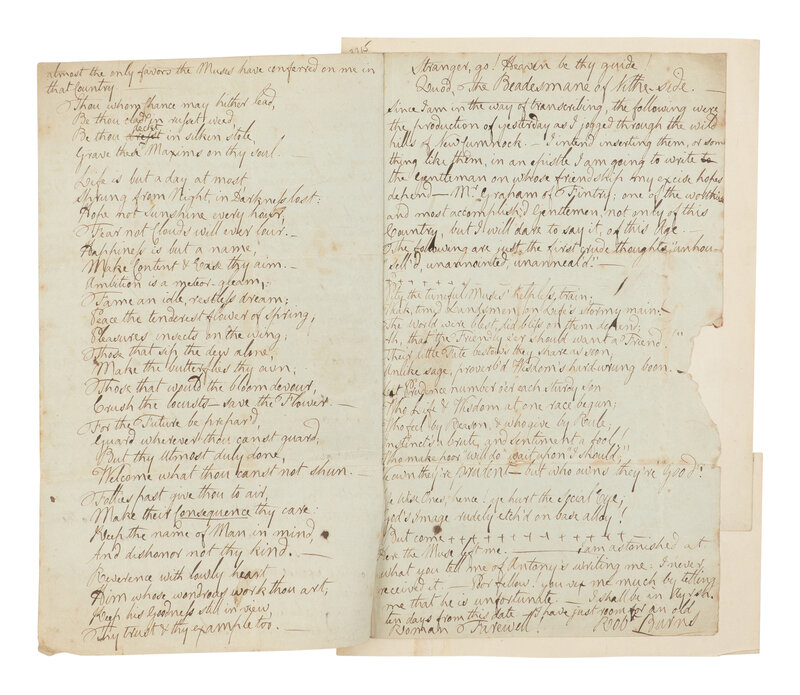 almost the only favors the Muses have conferred on me in
that Country
Thou whom chance may hither lead,
Be thou clad in russet weed,
Be thou deckt in silken stole,
Grave these Maxims on thy soul. —
Life is but a day at most
Sprung from Night, in Darkness lost:
Hope not Sunshine every hour,
Fear not Clouds will ever lour. —
Happiness is but a name,
Make Content & Ease thy aim. —
Ambition is a meteor-gleam;
Fame an idle, restless dream;
Peace the tenderest flower of Spring,
Pleasures insects on the wing;
Those that sip the dew alone,
Make the butterflies thy own;
Those that would the bloom devour,
Crush the locusts — save the Flower. —
For the Future be prepar'd,
Guard wherever thou canst guard;
But thy Utmost duly done,
Welcome what thou canst not shun. —
Follies past give thou to air,
Make their Consequence thy care:
Keep the name of Man in mind,
And dishonor not thy kind. —
Reverence with lowly heart
Him whose wondrous work thou art,
Keep his Goodness still in view,
Thy trust & thy example too. —
Stranger, go! Heaven be thy guide!
Quod, the Beadesmane of Nithe-side. —
Since I am in the way of transcribing, the following were
the production of yesterday as I jogged through the wild
hills of New Cumnock. — I intend inserting them, or some
thing like them, in an epistle I am going to write to
the Gentleman on whose friendship my excise hopes
depend — Mr. Graham of Fintry; one of the worthiest
and most accomplish'd Gentlemen, not only of this
Country, but I will dare to say it, of this Age. —
The following are just the first crude thoughts "unhou-
sell'd, unannointed, unanneal'd." —
+ + + + +
Pity the tuneful Muses' helpless train;
Weak, timid Landsmen on Life's stormy main:
The world were blest, did bliss on them depend;
Ah, that the Friendly e'er should want a Friend!"
Their little Fate bestows they share as soon,
Unlike sage, proverb'd Wisdom's hard-wrung boon. —
Let Prudence number o'er each sturdy son
Who Life & Wisdom at one race begun;
Who feel by Reason, & who give by Rule;
Instinct's a brute, and sentiment a fool!
Who make poor "will do" wait upon "I should;"
We own they're prudent — but who owns they're "Good?"
Ye Wise Ones, hence! ye hurt the Social Eye;
God's Image rudely etch'd on base alloy!
But come + + + + + + + + + +
Here the Muse left me. — I am astonished at
what you tell me of Antony's writing me: I never
received it. — Poor fellow! you vex me much by telling
me that he is unfortunate. — I shall be in Ayrsh.
ten days from this date. I have just room for an old
Roman Farewell! Robt Burns